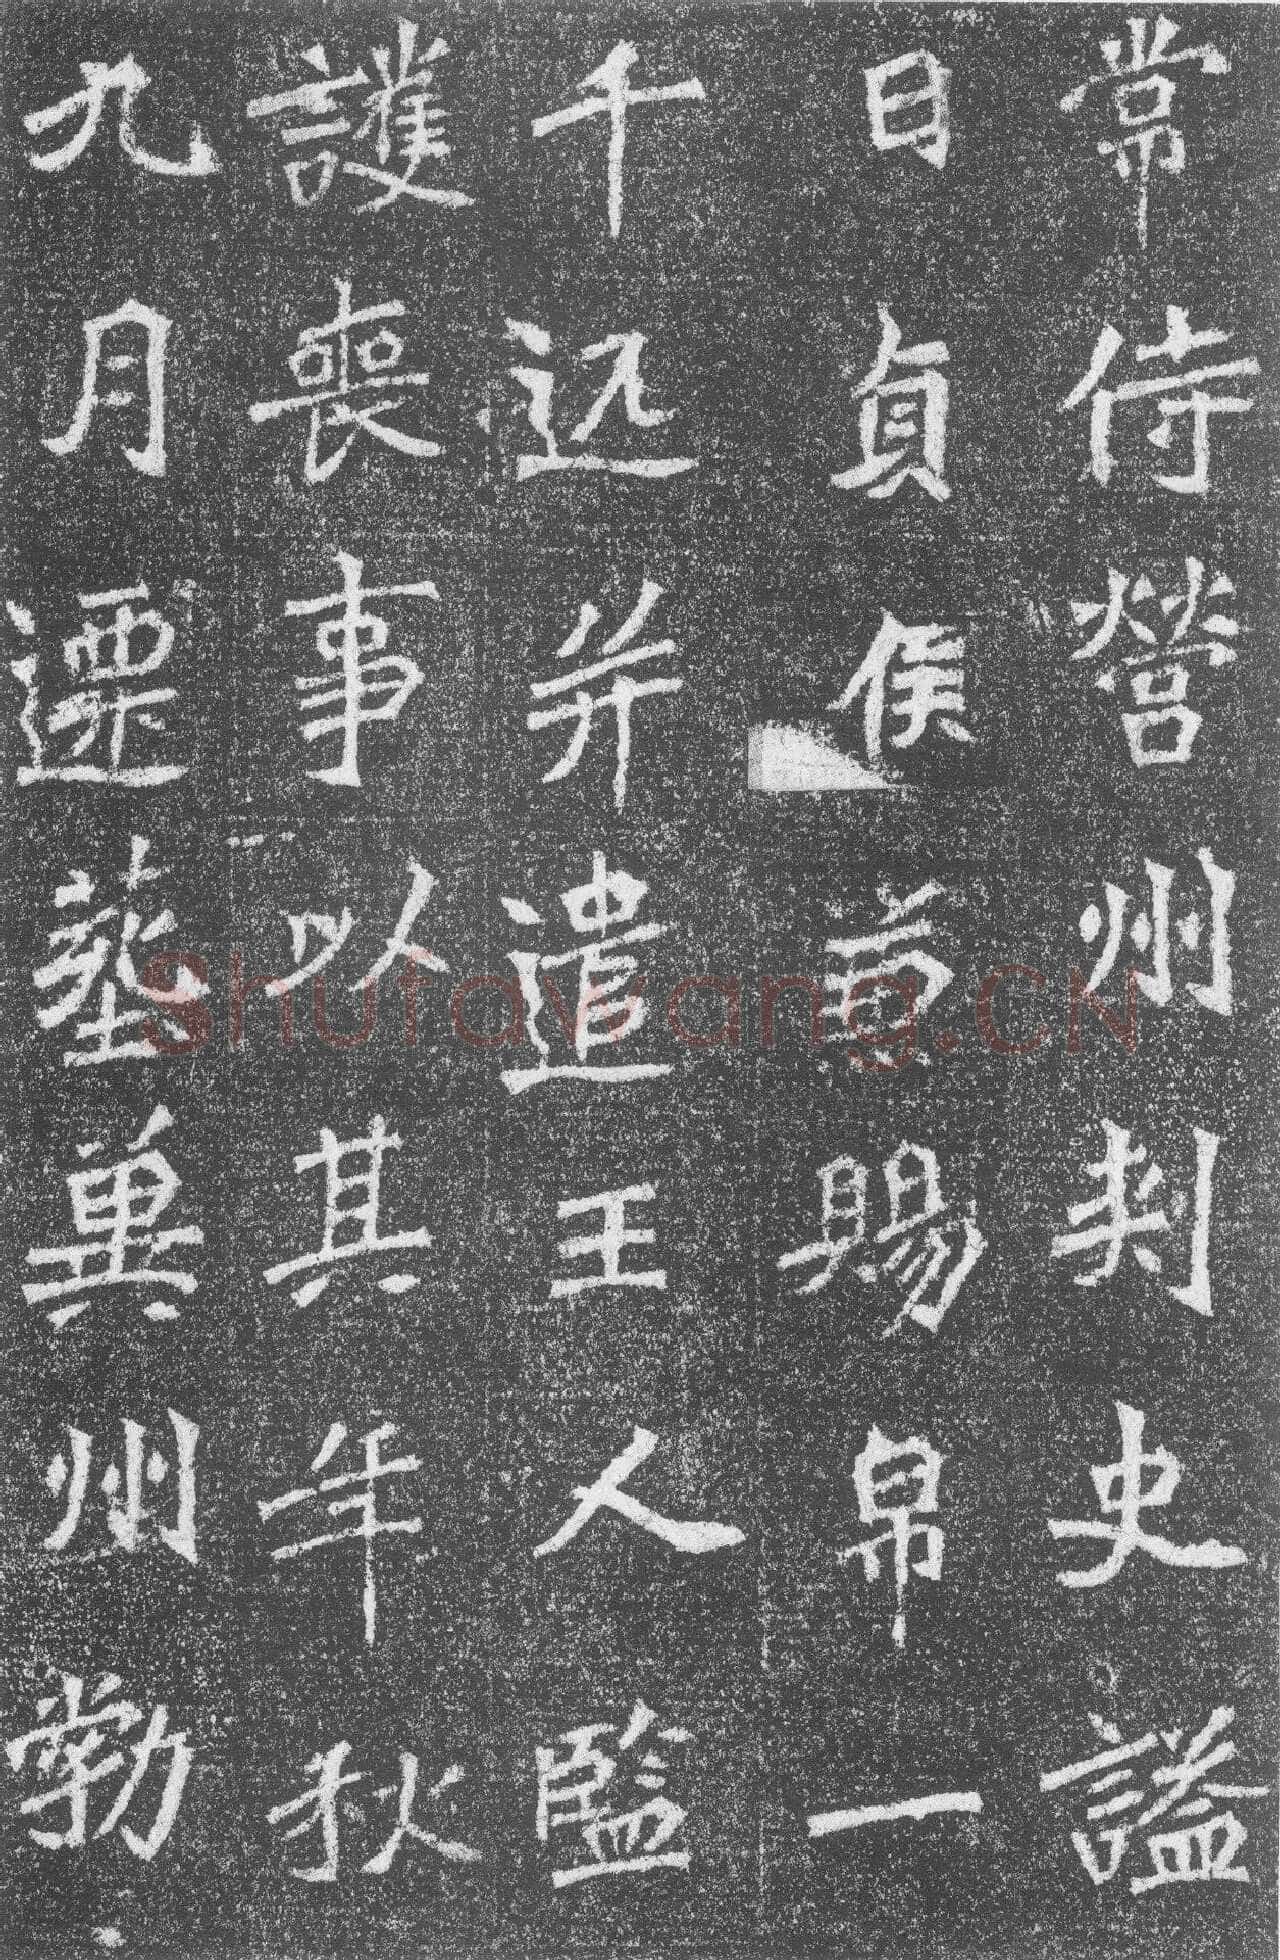 常侍營州刾史謚
日貞侯兼賜帛一
千迊并遣王人監
護喪事以其年秋
九月遷葬冀州勃
Shufawang.CN